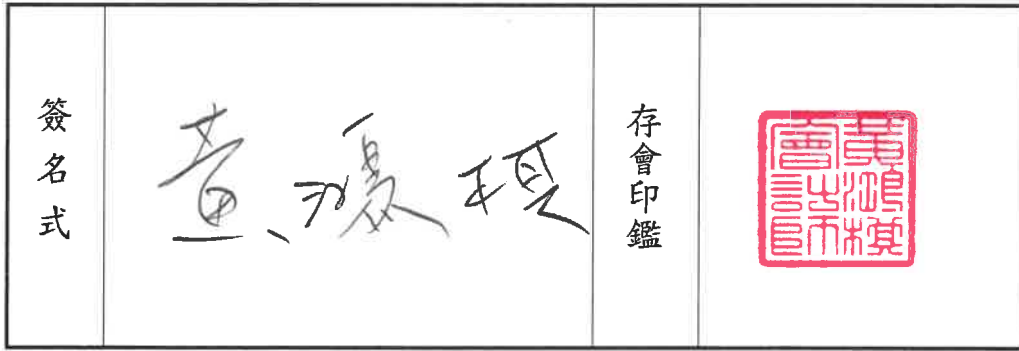 簽名式
黃鴻棋
存會印鑑
黃鴻棋
會計師